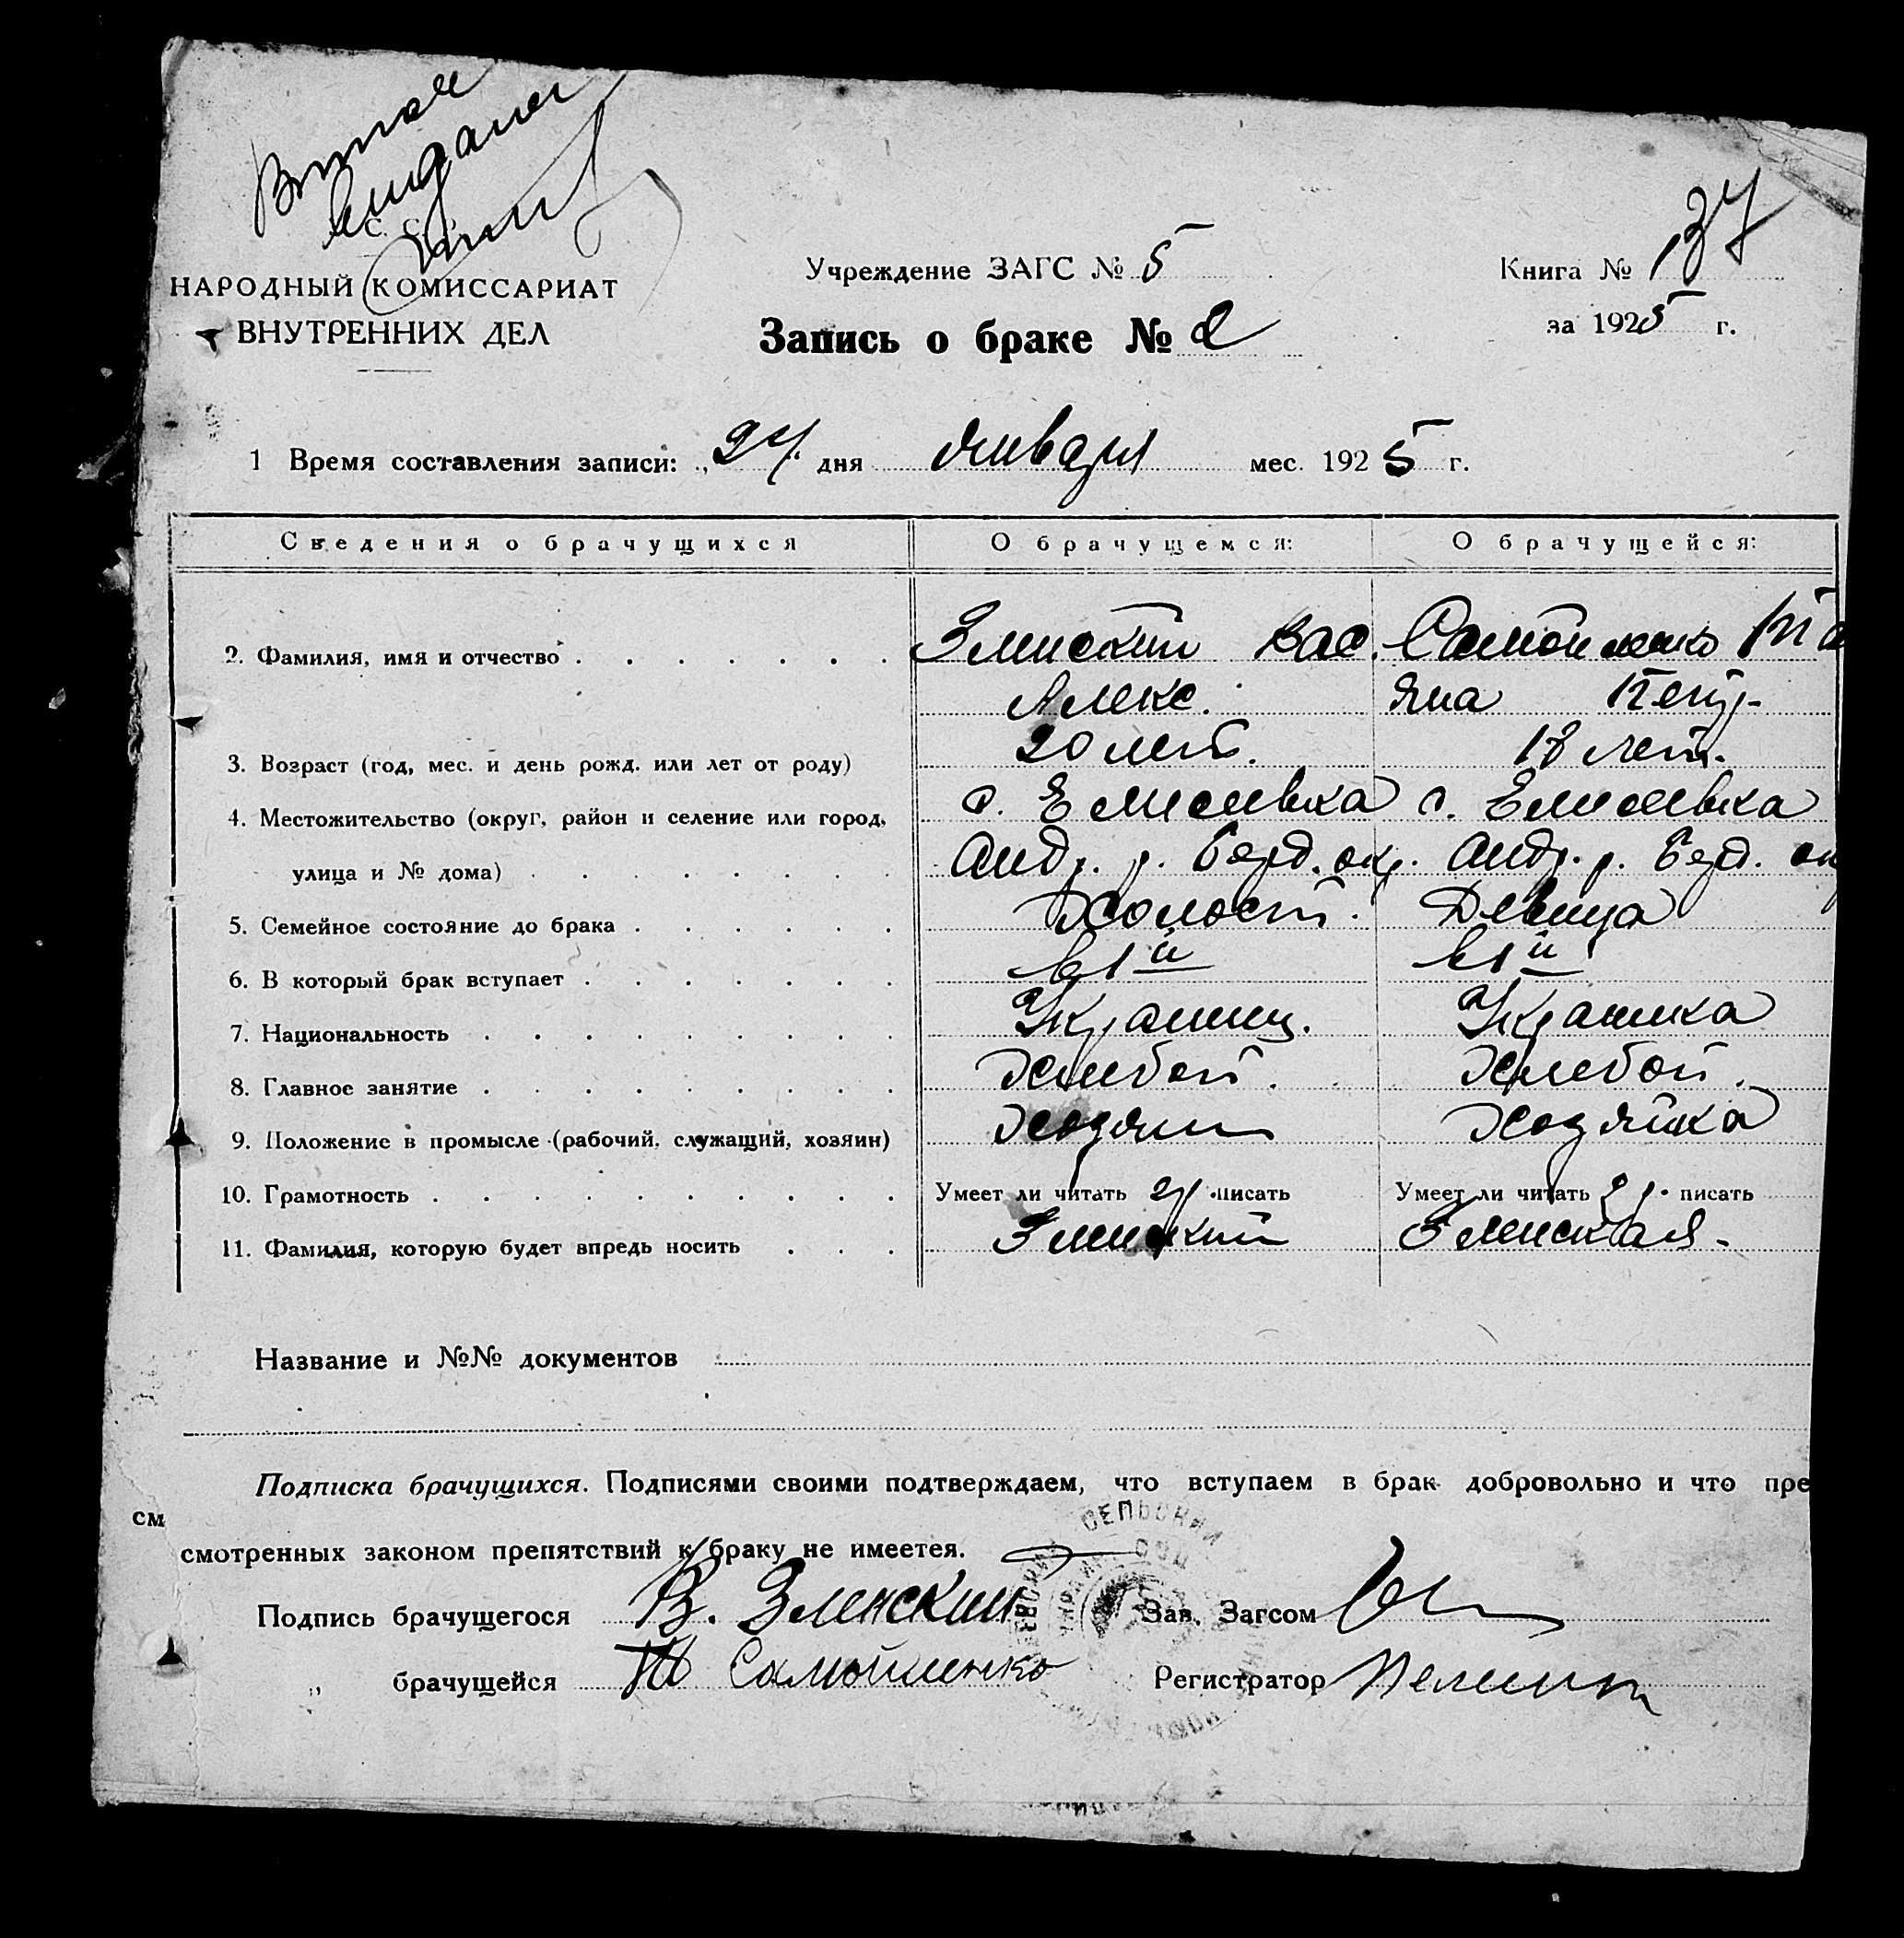 С. С.
НАРОДНЫЙ КОМИССАРИАТ
ВНУТРЕННИХ ДЕЛ
Учреждение ЗАГС № 5
Книга № 137
Запись о браке № 2
за 1925 г.
1 Время составления записи: „24“ дня января мес. 1925 г.
Сведения о брачущихся О брачущемся: О брачущейся:
2. Фамилия, имя и отчество Зминский Вас. Самойленко Тат
Алекс. яна Петр.
3. Возраст (год, мес. и день рожд. или лет от роду) 20 лет. 18 лет.
4. Местожительство (округ, район и селение или город, с. Елисеевка с. Елисеевка
улица и № дома) Андр. р. Берд. окр. Андр. р. Берд. ок
5. Семейное состояние до брака Холост. Девица
6. В который брак вступает в 1й в 1й
7. Национальность Украинец. Украинка
8. Главное занятие Хлебоп. Хлебоп.
9. Положение в промысле (рабочий, служащий, хозяин) Хозяин Хозяйка
10. Грамотность Умеет ли читать гр. писать Умеет ли читать гр. писать
11. Фамилия, которую будет впредь носить Зминский Зминская.
Название и №№ документов
Подписка брачущихся. Подписями своими подтверждаем, что вступаем в брак добровольно и что пре
см
смотренных законом препятствий к браку не имеетея.
Подпись брачущегося В. Зленский Зав. Загсом
„ брачущейся Т Самойленко Регистратор